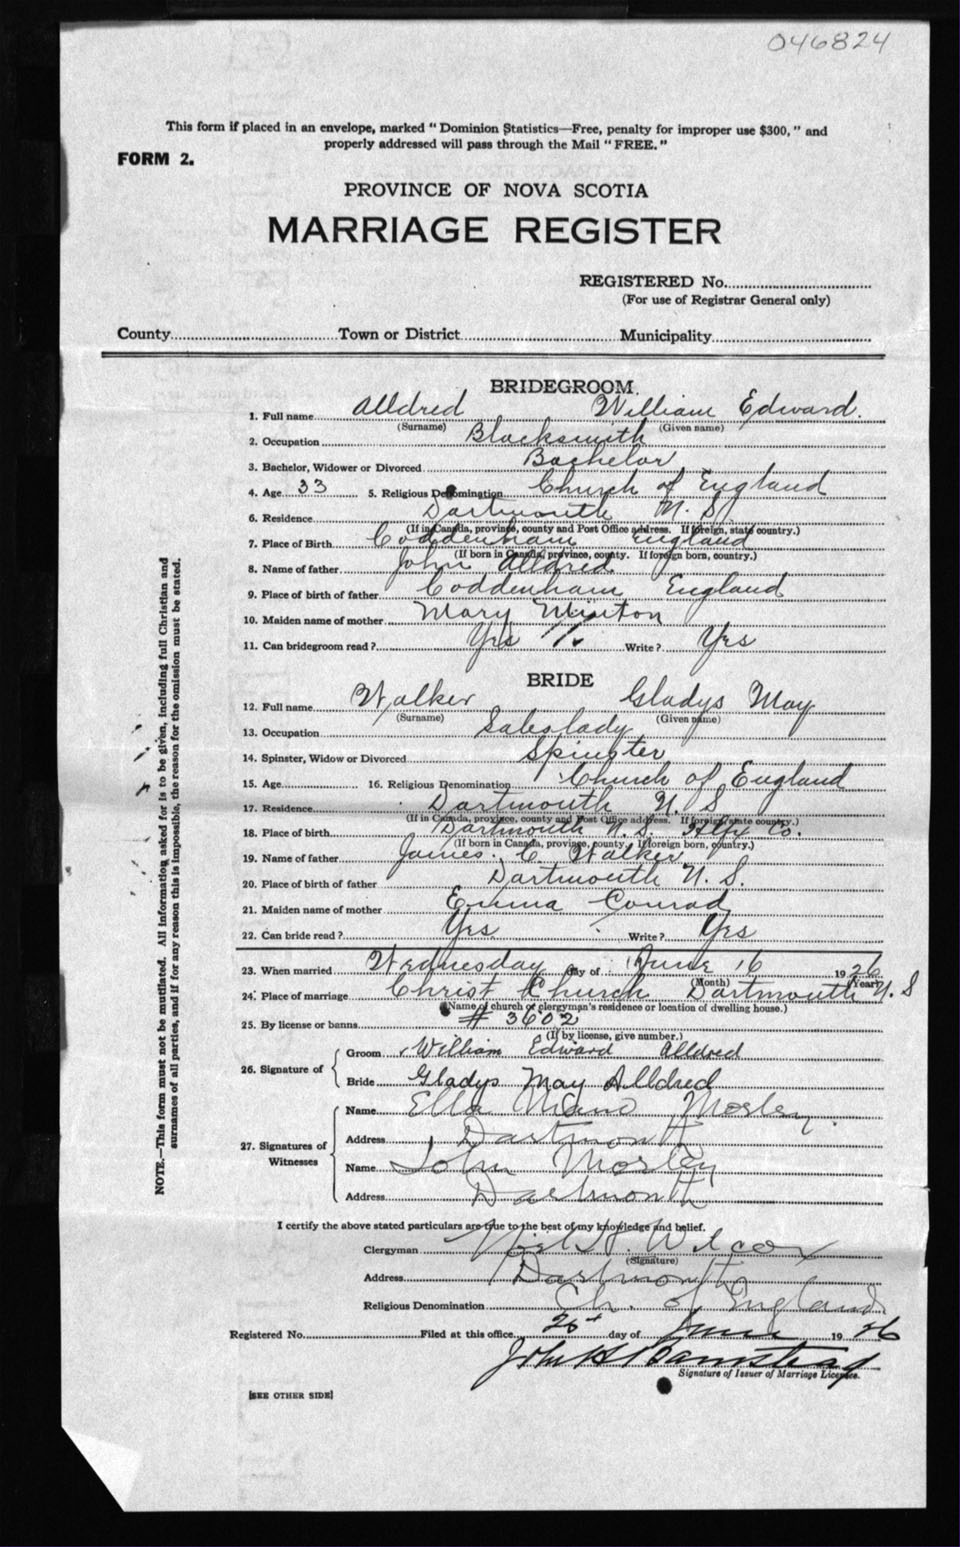 046824
This form if placed in an envelope, marked "Dominion Statistics—Free, penalty for improper use $300," and
properly addressed will pass through the Mail "FREE."
FORM 2.
PROVINCE OF NOVA SCOTIA
MARRIAGE REGISTER
REGISTERED No.
(For use of Registrar General only)
County Town or District Municipality
BRIDEGROOM
1. Full name Alldred William Edward.
(Surname) (Given name)
2. Occupation Blacksmith
3. Bachelor, Widower or Divorced Bachelor
4. Age 33 5. Religious Denomination Church of England
6. Residence Dartmouth N. S.
(If in Canada, province, county and Post Office address. If foreign, state country.)
7. Place of Birth Coddenham England
(If born in Canada, province, county. If foreign born, country.)
8. Name of father John Alldred
9. Place of birth of father Coddenham England
10. Maiden name of mother Mary Minton
11. Can bridegroom read? Yes Write? Yes
BRIDE
12. Full name Walker Gladys May
(Surname) (Given name)
13. Occupation Saleslady
14. Spinster, Widow or Divorced Spinster
15. Age 16. Religious Denomination Church of England
17. Residence Dartmouth N. S
(If in Canada, province, county and Post Office address. If foreign state country.)
18. Place of birth Dartmouth N. S. Hlfx Co.
(If born in Canada, province, county. If foreign born, country.)
19. Name of father James. C. Walker
20. Place of birth of father Dartmouth N. S.
21. Maiden name of mother Emma Conrad
22. Can bride read? Yes Write? Yes
23. When married Wednesday day of June 16 1926
(Month) (Year)
24. Place of marriage Christ Church Dartmouth N. S
(Name of church or clergyman's residence or location of dwelling house.)
25. By license or banns # 3602
(If by license, give number.)
26. Signature of
Groom William Edward Alldred
Bride Gladys May Alldred
27. Signatures of Witnesses
Name Ella Morley
Address Dartmouth
Name John Morley
Address Dartmouth
I certify the above stated particulars are true to the best of my knowledge and belief.
Clergyman Wilcox
(Signature)
Address Dartmouth
Religious Denomination Ch. of England
Registered No. Filed at this office day of June 1926
Signature of Issuer of Marriage Licence.
[SEE OTHER SIDE]
NOTE.—This form must not be mutilated. All information asked for is to be given, including full Christian and
surnames of all parties, and if for any reason this is impossible, the reason for the omission must be stated.